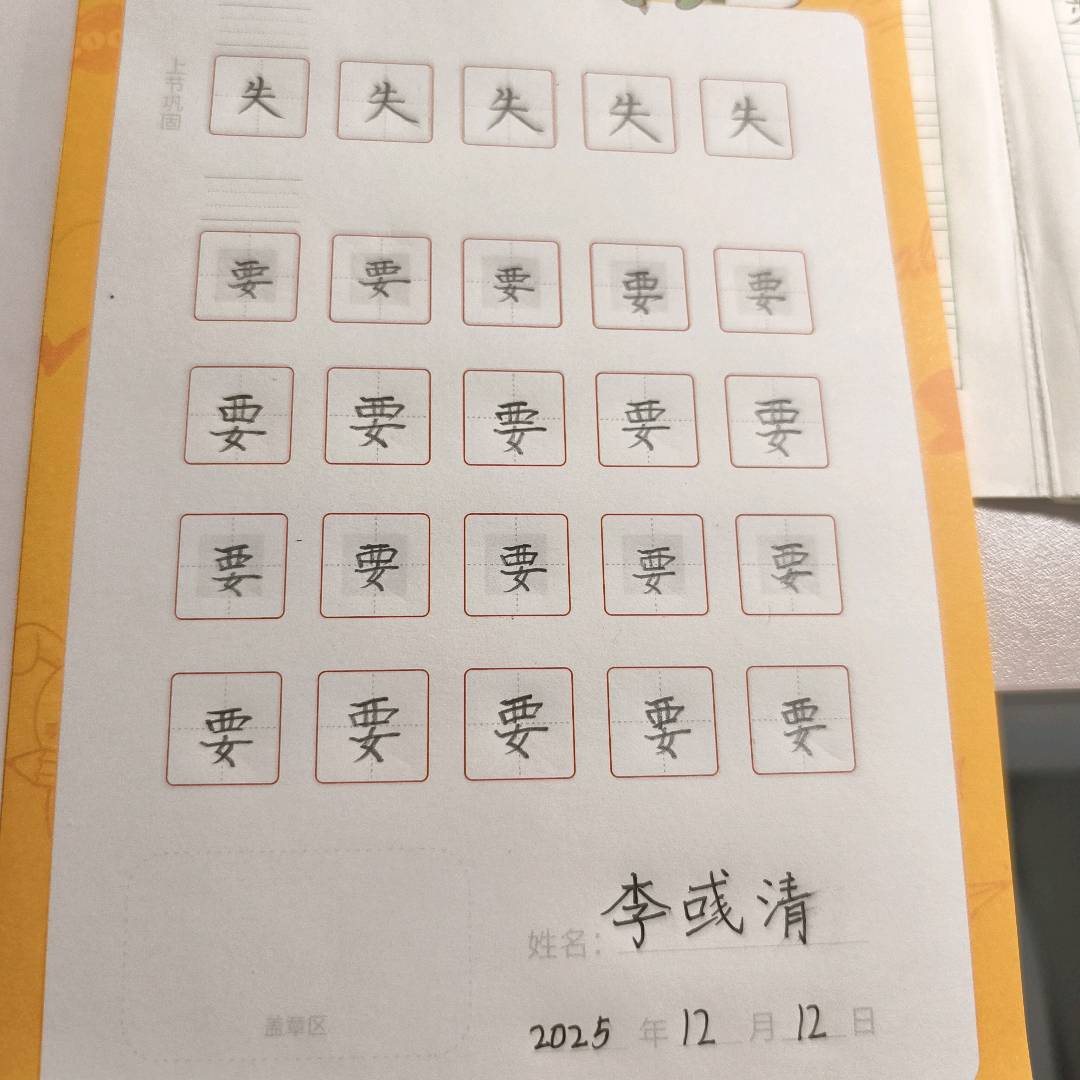 上节巩固
失 失 失 失 失
要 要 要 要 要
要 要 要 要 要
要 要 要 要 要
要 要 要 要 要
姓名：李彧清
盖章区
2025 年 12 月 12 日